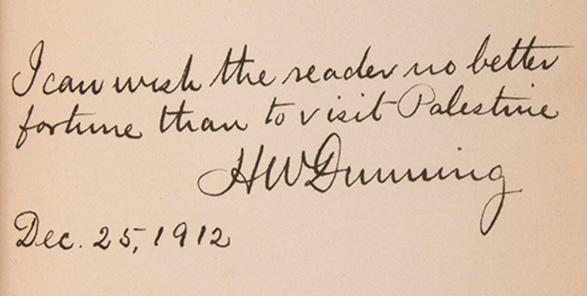 I can wish the reader no better
fortune than to visit Palestine
HWDunning
Dec. 25, 1912